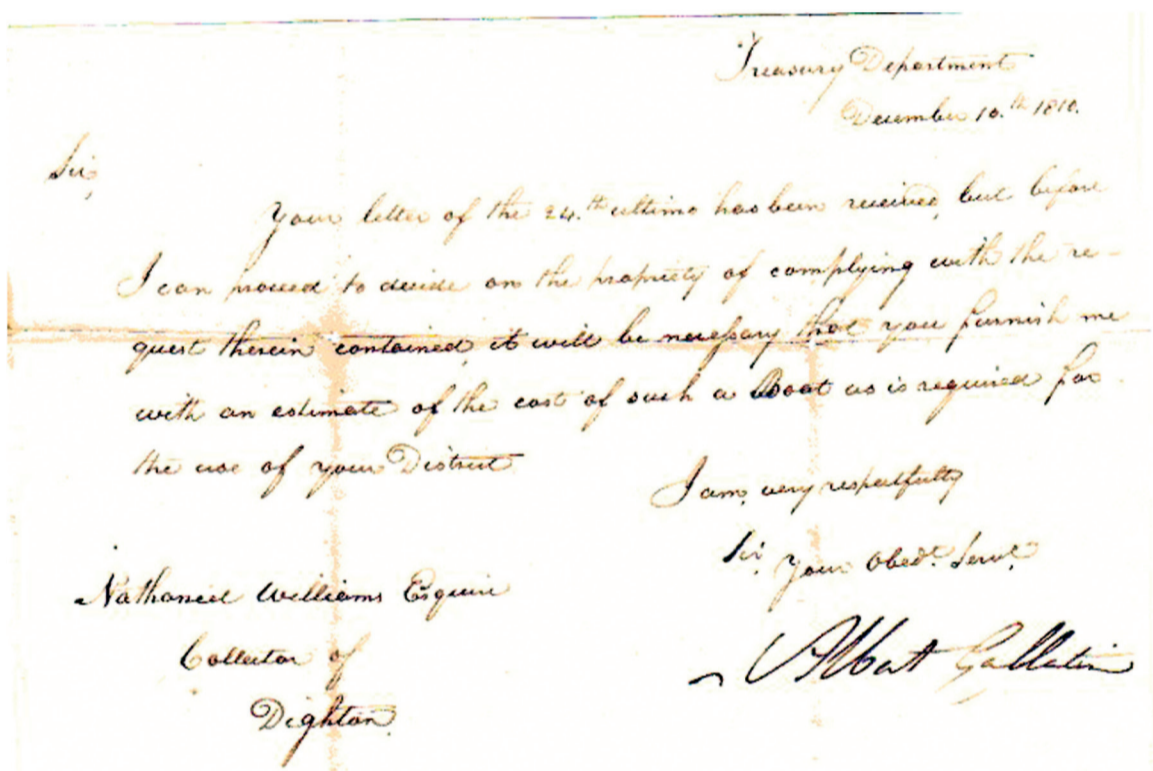 Treasury Department
December 10.th 1810.
Sir,
Your letter of the 24.th ultimo has been received, but before
I can proceed to decide on the propriety of complying with the re-
quest therein contained, it will be necessary that you furnish me
with an estimate of the cost of such a Boat as is required for
the use of your District
I am, very respectfully
Sir, Your Obedt. Servt.
Albert Gallatin
Nathaniel Williams Esquire
Collector of
Dighton.